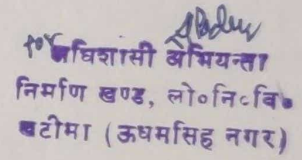 अधिशासी अभियन्ता
निर्माण खण्ड, लो०नि०वि०
खटीमा (ऊधमसिह नगर)